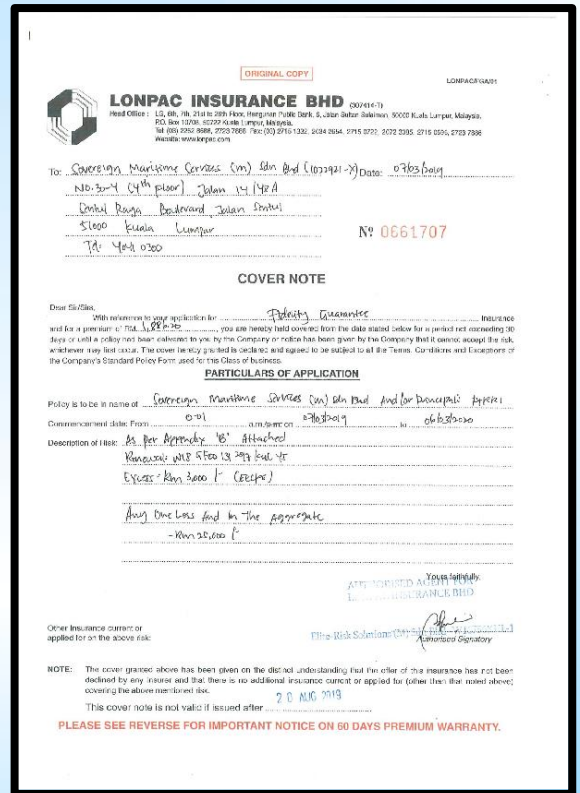 ORIGINAL COPY
LONPAC/FGA/01
LONPAC INSURANCE BHD (307414-T)
Head Office : LG, 6th, 7th, 21st to 26th Floor, Bangunan Public Bank, 6, Jalan Sultan Sulaiman, 50000 Kuala Lumpur, Malaysia.
P.O. Box 10708, 50722 Kuala Lumpur, Malaysia.
Tel: (03) 2262 8688, 2723 7888 Fax: (03) 2715 1332
Website: www.lonpac.com
To: Sovereign Maritime Services (m) Sdn Bhd (1022921-X) Date: 07/03/2019
No. 30-4 (4th floor) Jalan 14/48A
Sentul Raya Boulevard Jalan Sentul
51000 Kuala Lumpur
Tel: 4041 0300
Nº 0661707
COVER NOTE
Dear Sir/Sirs,
With reference to your application for Fidelity Guarantee Insurance
and for a premium of RM, you are hereby held covered from the date stated below for a period not exceeding 30
days or until a policy had been delivered to you by the Company or notice has been given by the Company that it cannot accept the risk,
whichever may first occur. The cover hereby granted is declared and agreed to be subject to all the Terms, Conditions and Exceptions of
the Company's Standard Policy Form used for this Class of business.
PARTICULARS OF APPLICATION
Policy is to be in name of Sovereign Maritime Services (m) Sdn Bhd And/or Principals
Commencement date: From 0-01 a.m./p.m. on 07/03/2019 to 06/03/2020
Description of Risk: As Per Appendix 'B' Attached
Renewal:
Excess - Rm 3,000/-
Any One Loss And In The Aggregate
- Rm 25,000/-
Yours faithfully,
AUTHORISED AGENT FOR
LONPAC INSURANCE BHD
Other Insurance current or
applied for on the above risk:
Elite-Risk Solutions (M) Sdn Bhd
Authorised Signatory
NOTE: The cover granted above has been given on the distinct understanding that the offer of this insurance has not been
declined by any insurer and that there is no additional insurance current or applied for (other than that noted above)
covering the above mentioned risk.
This cover note is not valid if issued after 20 AUG 2019
PLEASE SEE REVERSE FOR IMPORTANT NOTICE ON 60 DAYS PREMIUM WARRANTY.